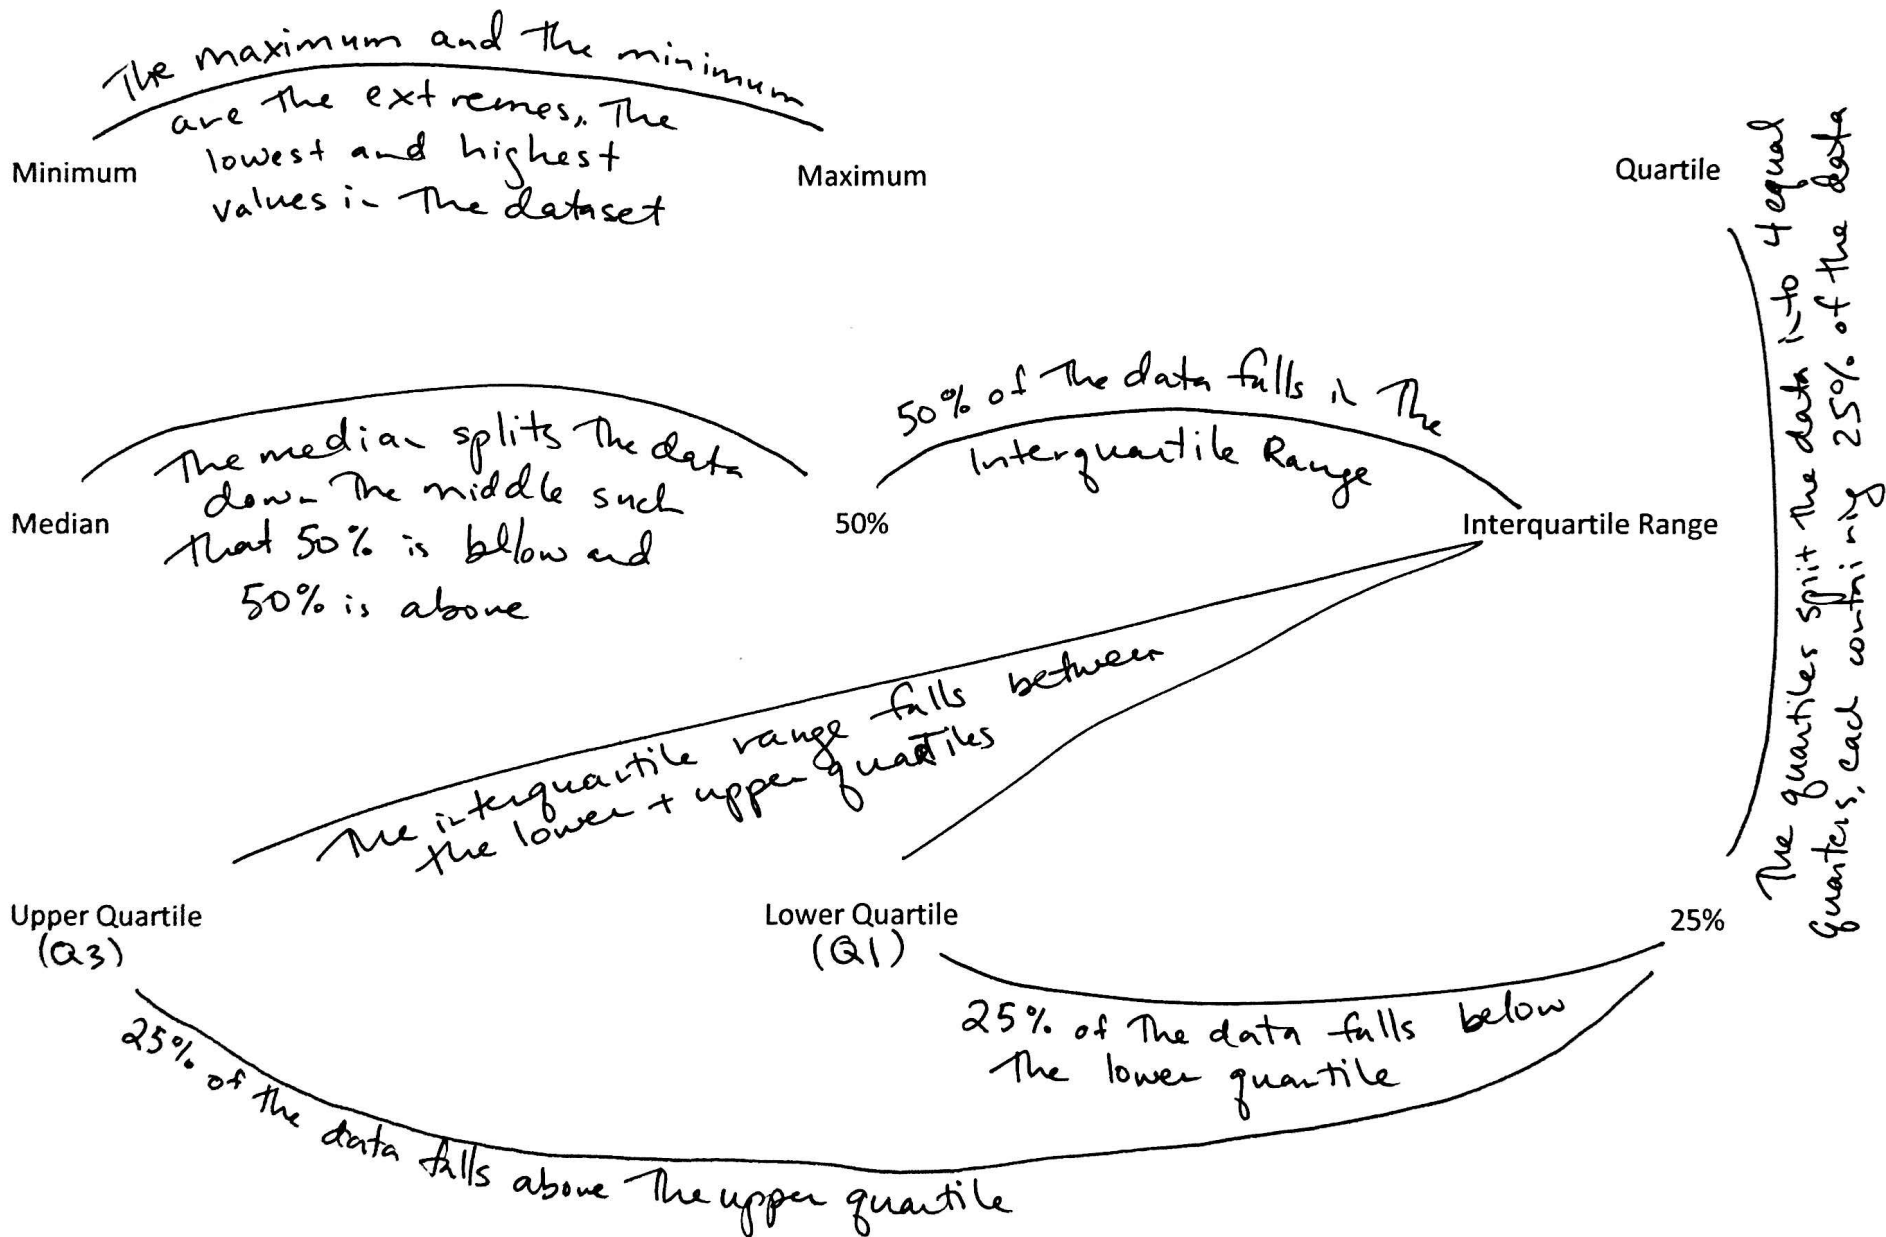 The maximum and the minimum
are the extremes, The
lowest and highest
values in The dataset
Minimum
Maximum
Quartile
The quartiles split the data into 4 equal
quarters, each containing 25% of the data
The median splits The data
down The middle such
that 50% is below and
50% is above
Median
50%
50% of The data falls in The
Interquartile Range
Interquartile Range
The interquartile range falls between
the lower + upper quartiles
Upper Quartile
(Q3)
Lower Quartile
(Q1)
25%
25% of The data falls below
The lower quartile
25% of the data falls above The upper quartile